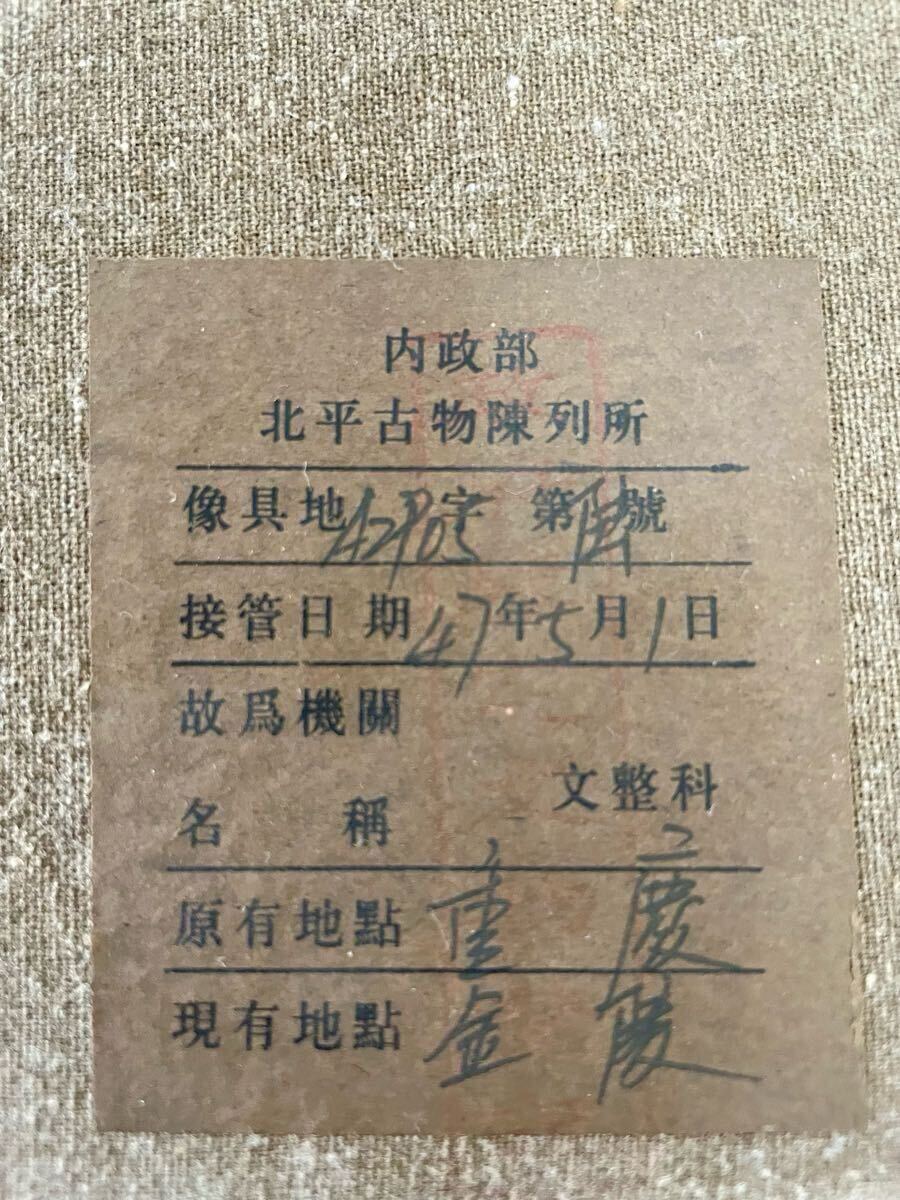 内政部
北平古物陳列所
像具地 字 第 號
接管日期 47年5月1日
故爲機關
文整科
名 稱 二
原有地點 重慶
現有地點 金陵